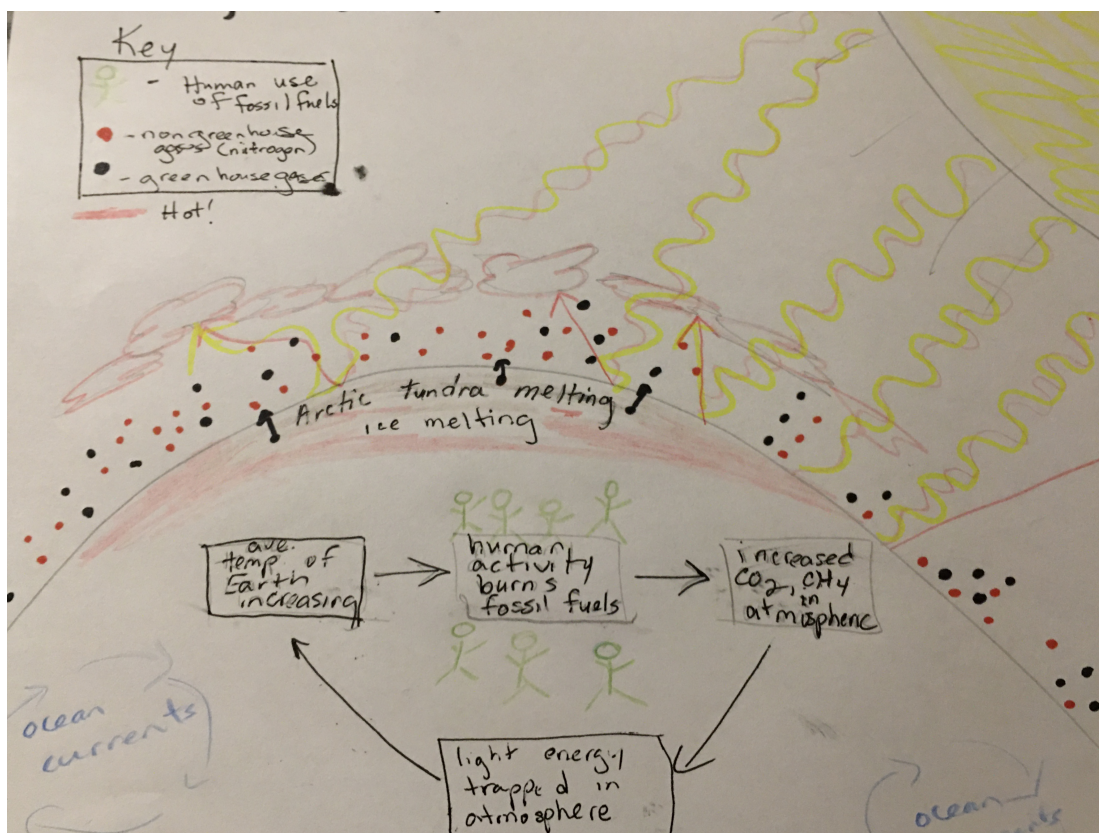 Key
- Human use
of fossil fuels
- nongreenhouse
gases (nitrogen)
- greenhouse gases
Hot!
Arctic tundra melting
ice melting
ave.
temp of
Earth
increasing
human
activity
burns
fossil fuels
increased
CO2, CH4
in
atmospheric
light energy
trapped in
atmosphere
ocean
currents
ocean